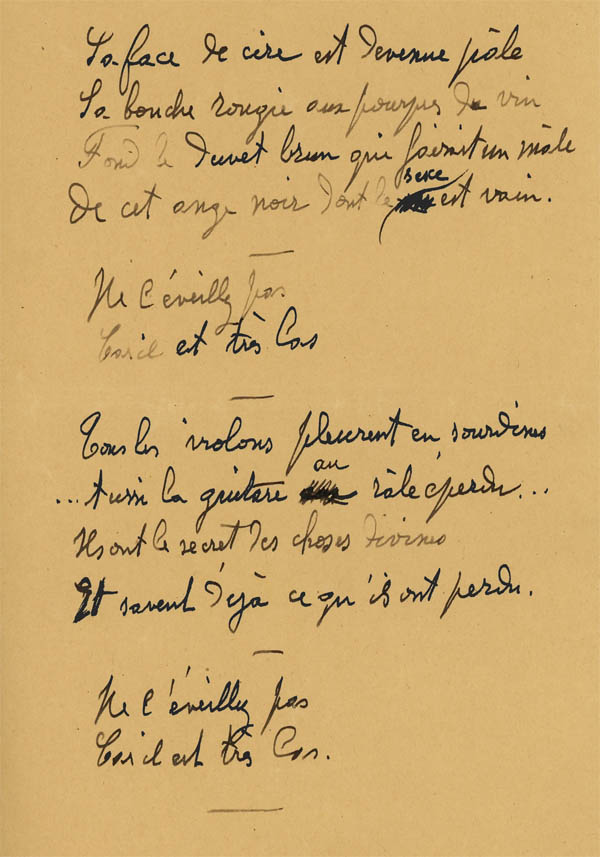 Sa face de cire est devenue pâle
Sa bouche rougie aux pourpres du vin
Fond le duvet brun qui faisait un mâle
De cet ange noir dont le sexe est vain.
Ne l'éveillez pas
Car il est très las
Tous les violons pleurent en sourdines
... Aussi la guitare au râle éperdu...
Ils ont le secret des choses divines
Et savent déjà ce qu'ils ont perdu.
Ne l'éveillez pas
Car il est très las.